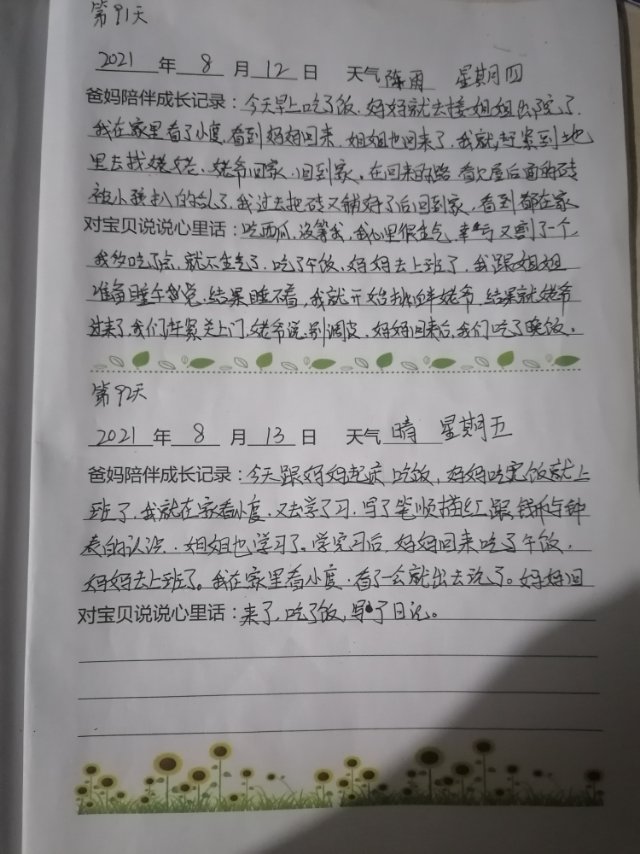 第91天
2021 年 8 月 12 日 天气 阵雨 星期四
爸妈陪伴成长记录：今天早上吃了饭，妈妈就去接姐姐出院了，
我在家里看了小度，看到妈妈回来，姐姐也回来了，我就赶紧到地
里去找姥姥、姥爷回家，回到家。在回来的路 屋后面的砖
被小孩扒的 了，我过去把砖又铺好了后回到家，看到都在家
对宝贝说说心里话：吃西瓜，没等我，我心里很生气，幸亏又割了一个，
我约吃了点，就不生气了，吃了午饭，妈妈去上班了，我跟姐姐
准备睡午觉，结果睡不着，我就开始 姥爷，结果就姥爷
进来了，我们赶紧关上门，姥爷说，别调皮，妈妈回来后，我们吃了晚饭。
第92天
2021 年 8 月 13 日 天气 晴 星期五
爸妈陪伴成长记录：今天跟妈妈起床，吃饭，妈妈吃完饭就上
班了，我就在家看小度，又去学了习，写了笔顺描红，跟钱币与钟
表的认识，姐姐也学习了。学完习后，妈妈回来吃了午饭，
妈妈去上班了。我在家里看小度，看了一会就出去玩了。妈妈回
对宝贝说说心里话：来了，吃了饭，写了日记。